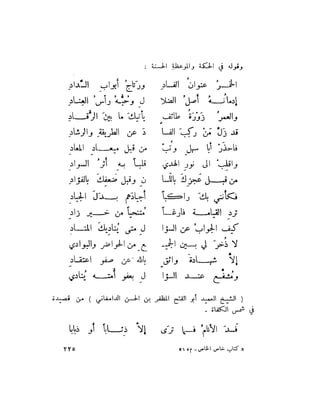 وقوله في الحكمة والموعظة الحسنة :
الخمـــرُ عنوانُ الفســادِ ورتاجُ أبوابِ السَّدادِ
إدمانُـــهُ أصلُ الضلا لِ وحُبُّـهُ رأسُ العنـادِ
والعمرُ زَوْرَةُ طائفٍ يأتيك ما بين الرُّقـــادِ
قد زلَّ مَنْ ركبَ الفسا دَ عن الطريقةِ والرشادِ
فاحذَرْ أبا سهلٍ وتُبْ من قبل ميعـــادِ المعادِ
واقلِبْ الى نور الهدي قلبـاً بـه أثرُ السوادِ
من قبــل عجزكَ باللسا نِ وقبل ضعفِكَ بالفؤادِ
فكـأنني بك راكبـاً أجيادَهم بــدلَ الجيـادِ
تردِ القيامـــة فارغـاً متنحيـاً من خـــير زادِ
كيف الجوابُ عن السؤا لِ متى يُناديكَ المنــادِ
لا ذُخرَ لي بـــين الجميـ ـعِ من الحواضر والبوادي
إلاَّ شهــادةُ واثقٍ بالله عن صفو اعتقـادِ
ومُشفَّــعٍ عنــد السؤا لِ بعفو أُمتـــه يُنادي
( الشيـخ العميد أبو الفتح المظفر بن الحسن الدامغاني ) من قصيدة
في شمس الكفاة .
فسـدَ الأنامُ فـما ترى إلاَّ ذئــاباً أو ذبابا
* كتاب خاص الخاص - م ١٥ * ٢٢٥